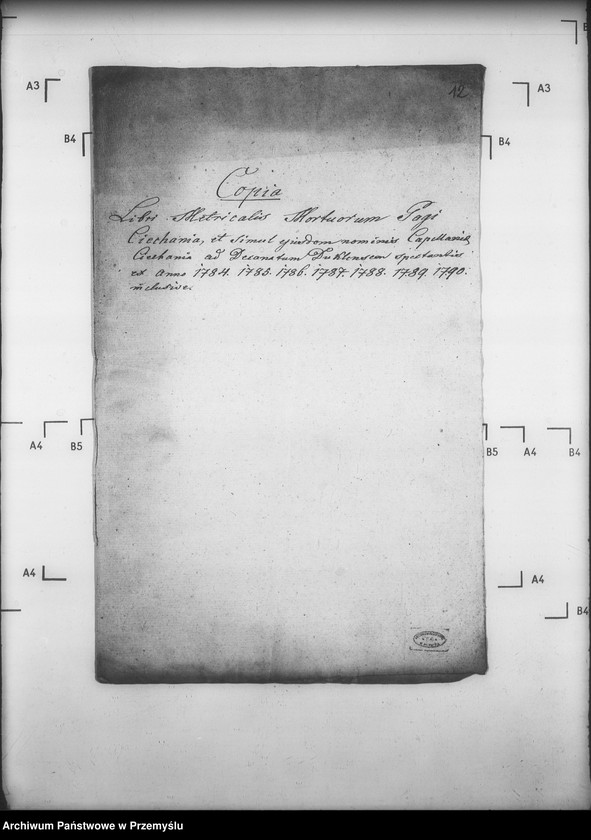 A3
A3
B4
B4
12
Copia
Libri Metricalis Mortuorum Pagi
Ciechania, et Simul ejusdem nominis Capellaniæ
Ciechania ad Decanatum Duklensem spectantis
ex Anno 1784. 1785. 1786. 1787. 1788. 1789. 1790.
inclusive.
A4
B5
B5
A4
B4
A4
A4
B4
Archiwum Państwowe w Przemyślu